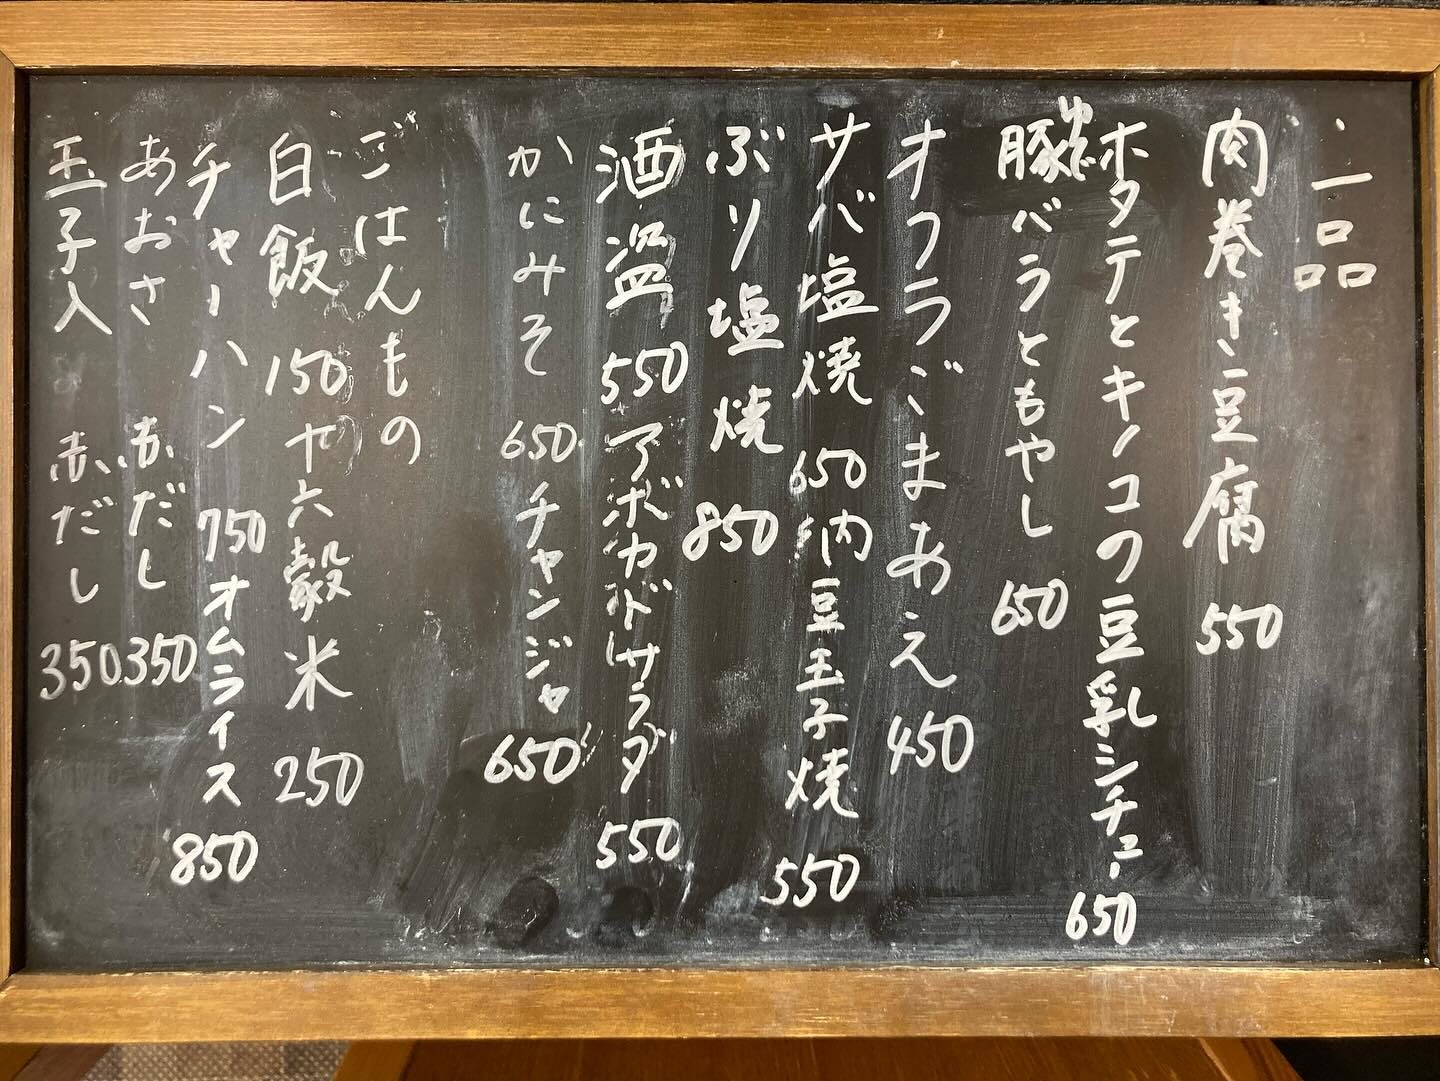 一品
肉巻き豆腐 550
ホタテとキノコの豆乳シチュー 650
豚バラともやし 650
オクラごまあえ 450
サバ塩焼 650 納豆玉子焼 550
ぶり塩焼 850
酒盗 550 アボカドサラダ 550
かにみそ 650 チャンジャ 650
ごはんもの
白飯 150 十六穀米 250
チャーハン 750 オムライス 850
あおさ 赤だし 350
玉子入 赤だし 350